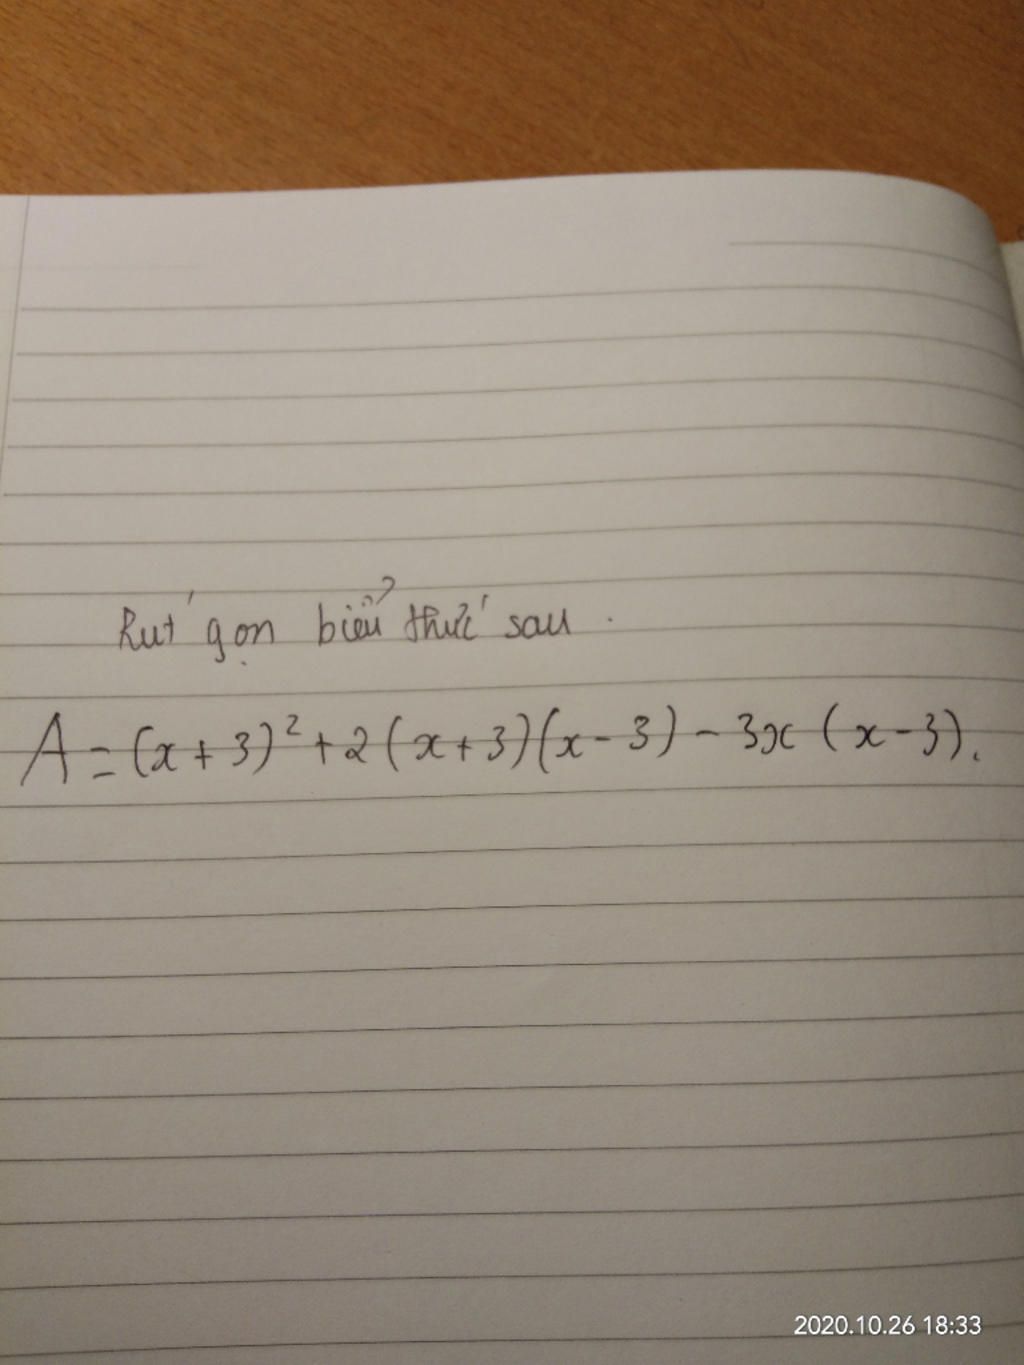 Rút gọn biểu thức sau.
A = (x + 3)² + 2(x + 3)(x - 3) - 3x(x - 3).
2020.10.26 18:33